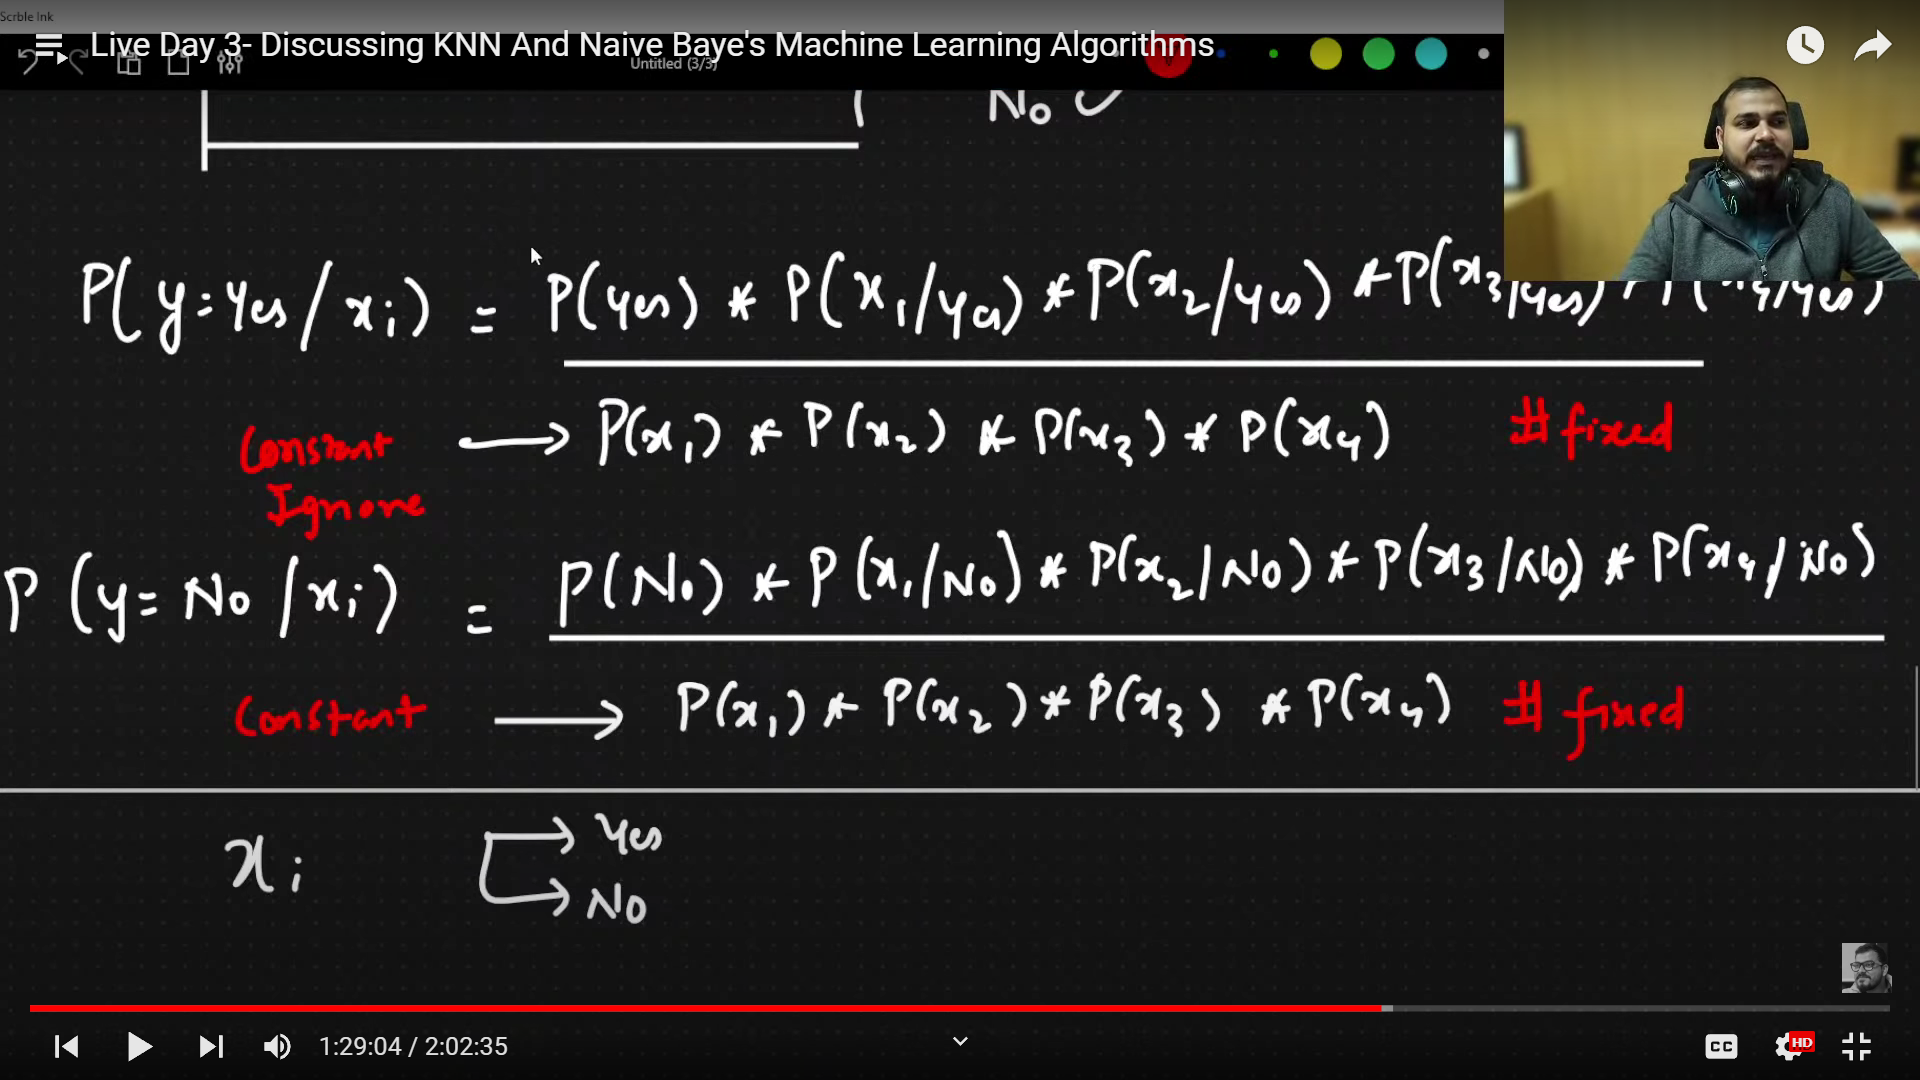 Scrble Ink
Live Day 3- Discussing KNN And Naive Baye's Machine Learning Algorithms
Untitled (3/3)
No
P(y=Yes/xi) = P(yes) * P(x1/yes) * P(x2/yes) * P(x3/yes) * P(x4/yes)
Constant → P(x1) * P(x2) * P(x3) * P(x4) # fixed
Ignore
P(y=No/xi) = P(No) * P(x1/No) * P(x2/No) * P(x3/No) * P(x4/No)
Constant → P(x1) * P(x2) * P(x3) * P(x4) # fixed
xi → Yes
→ No
1:29:04 / 2:02:35
CC
HD